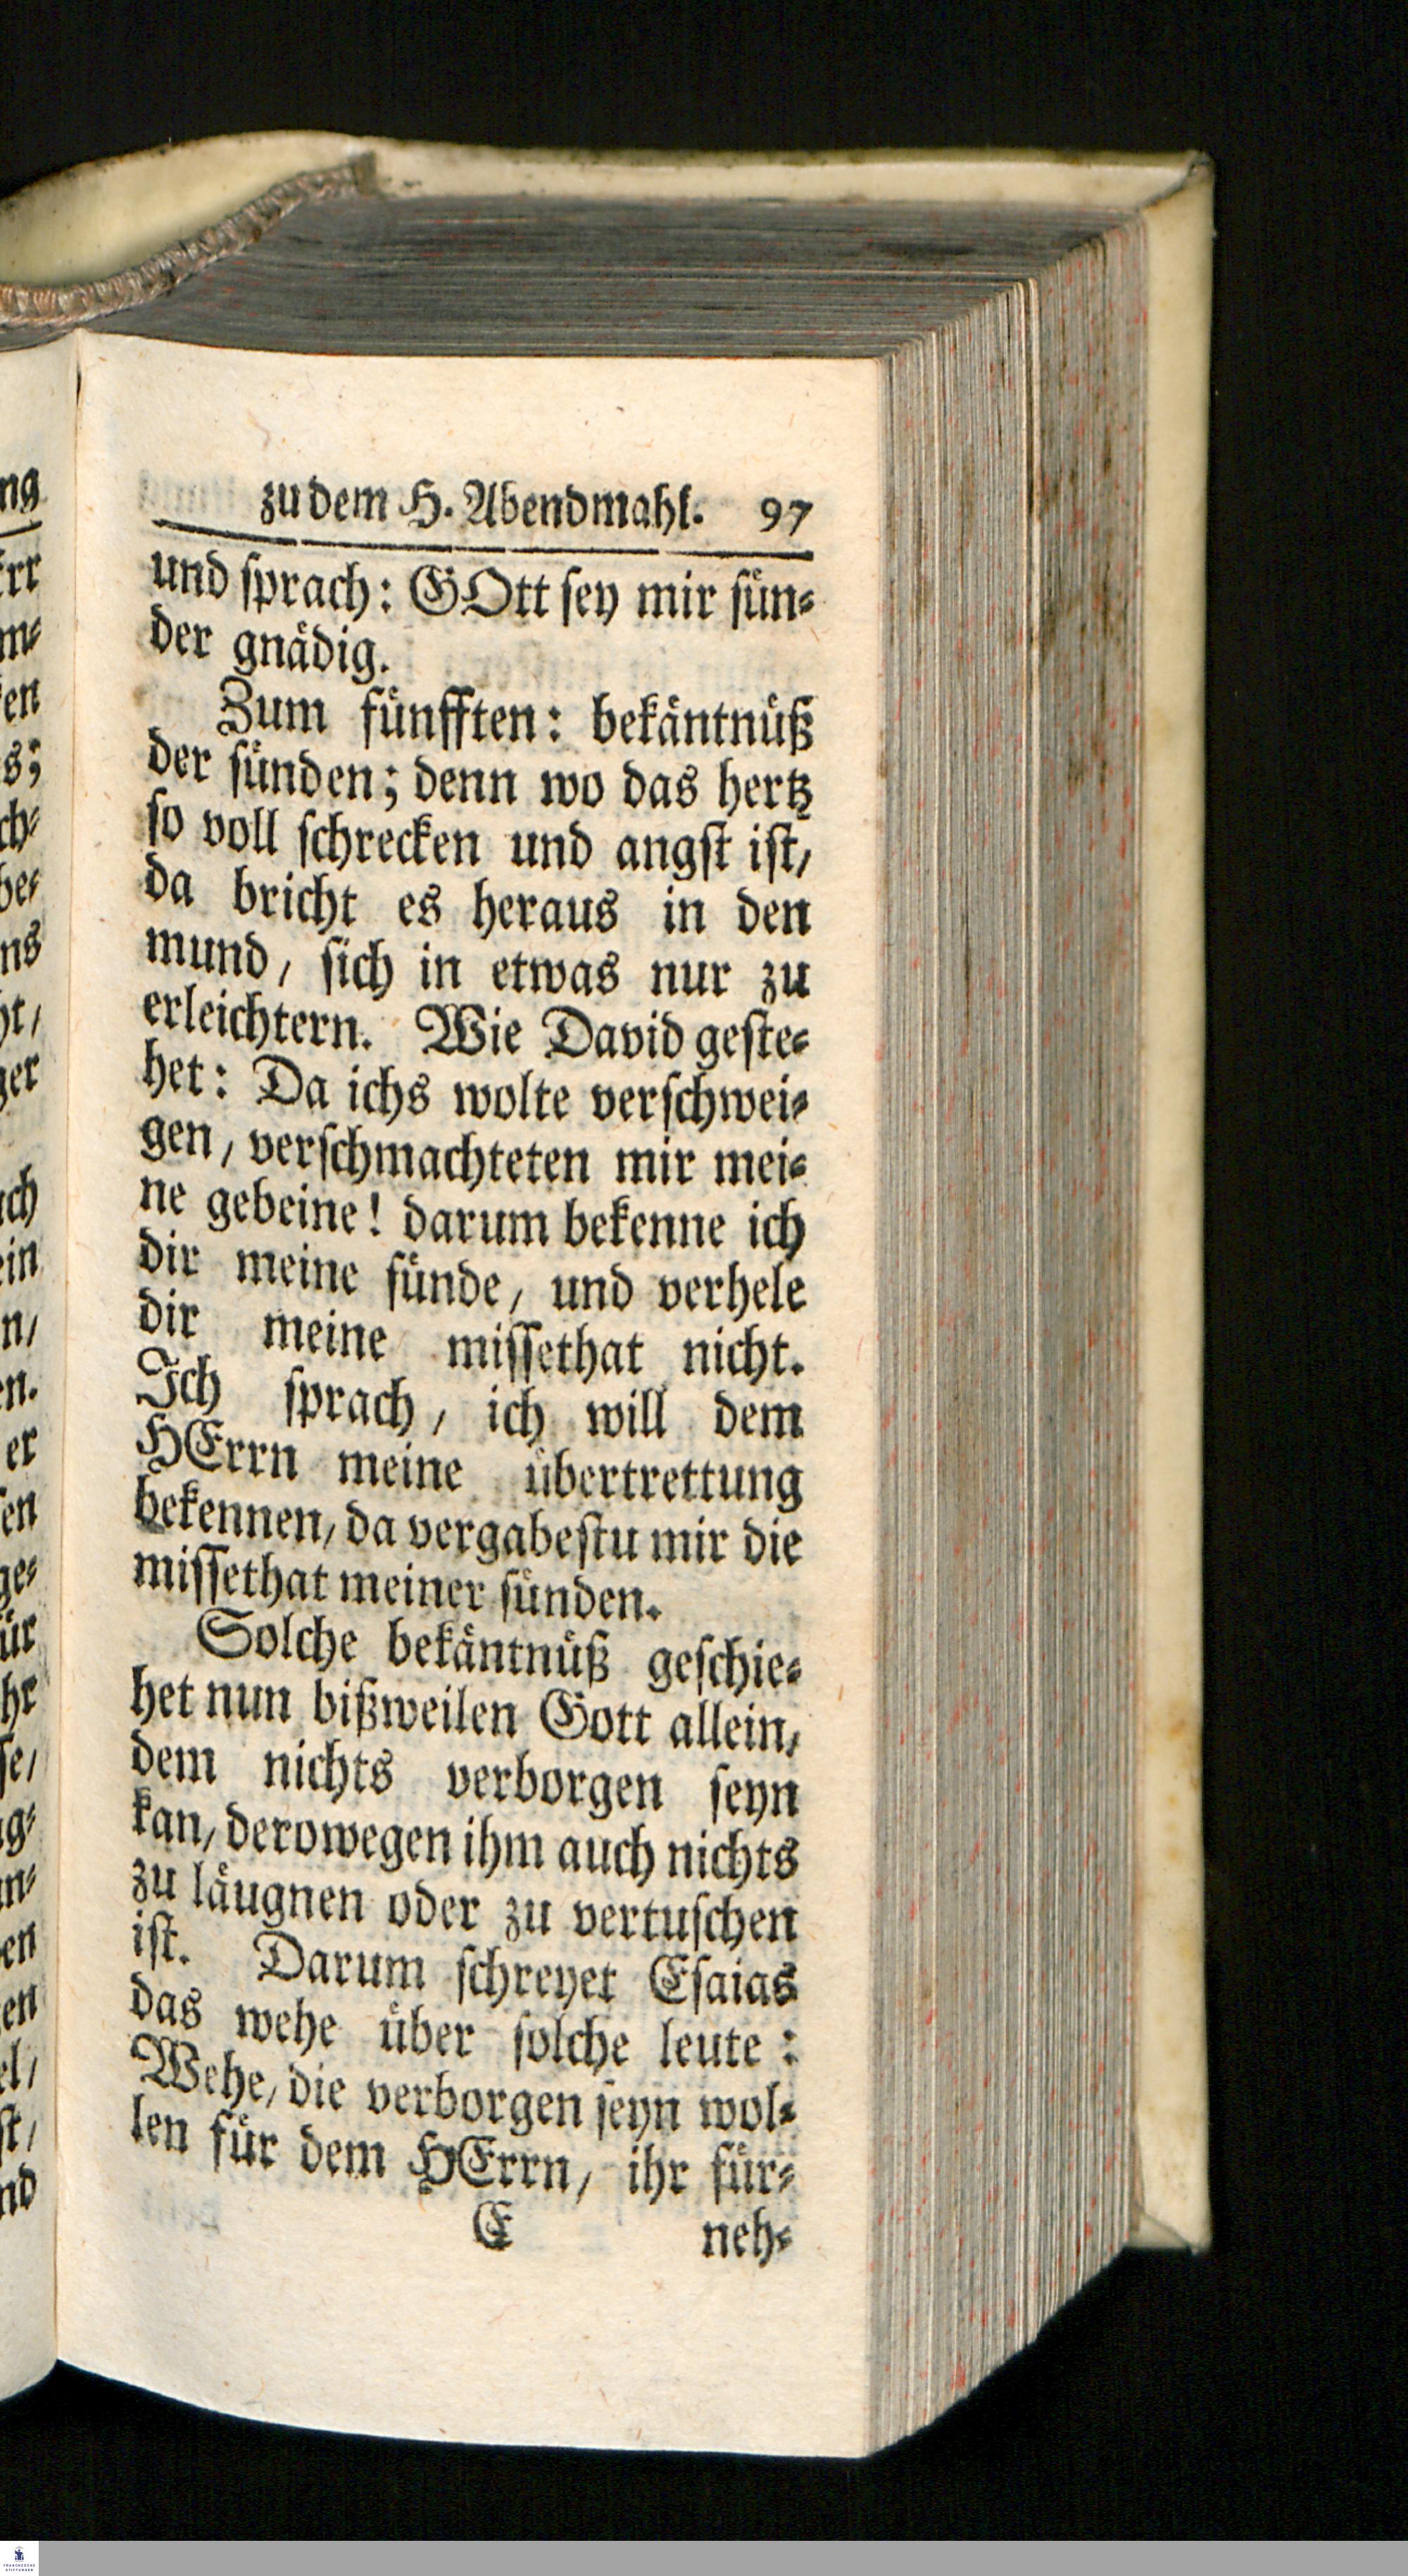 zu dem H. Abendmahl. 97
und ſprach: GOtt ſey mir ſün⸗
der gnädig.
Zum fünfften: bekäntnüß
der ſünden; denn wo das hertz
ſo voll ſchrecken und angſt iſt/
da bricht es heraus in den
mund / ſich in etwas nur zu
erleichtern. Wie David geſte⸗
het: Da ichs wolte verſchwei⸗
gen / verſchmachteten mir mei⸗
ne gebeine! darum bekenne ich
dir meine ſünde / und verhele
dir meine miſſethat nicht.
Ich ſprach / ich will dem
HErrn meine übertrettung
bekennen / da vergabeſtu mir die
miſſethat meiner ſünden.
Solche bekäntnüß geſchie⸗
het nun bißweilen Gott allein /
dem nichts verborgen ſeyn
kan / derowegen ihm auch nichts
zu läugnen oder zu vertuſchen
iſt. Darum ſchreyet Eſaias
das wehe über ſolche leute:
Wehe / die verborgen ſeyn wol⸗
len für dem HErrn / ihr für⸗
E neh⸗